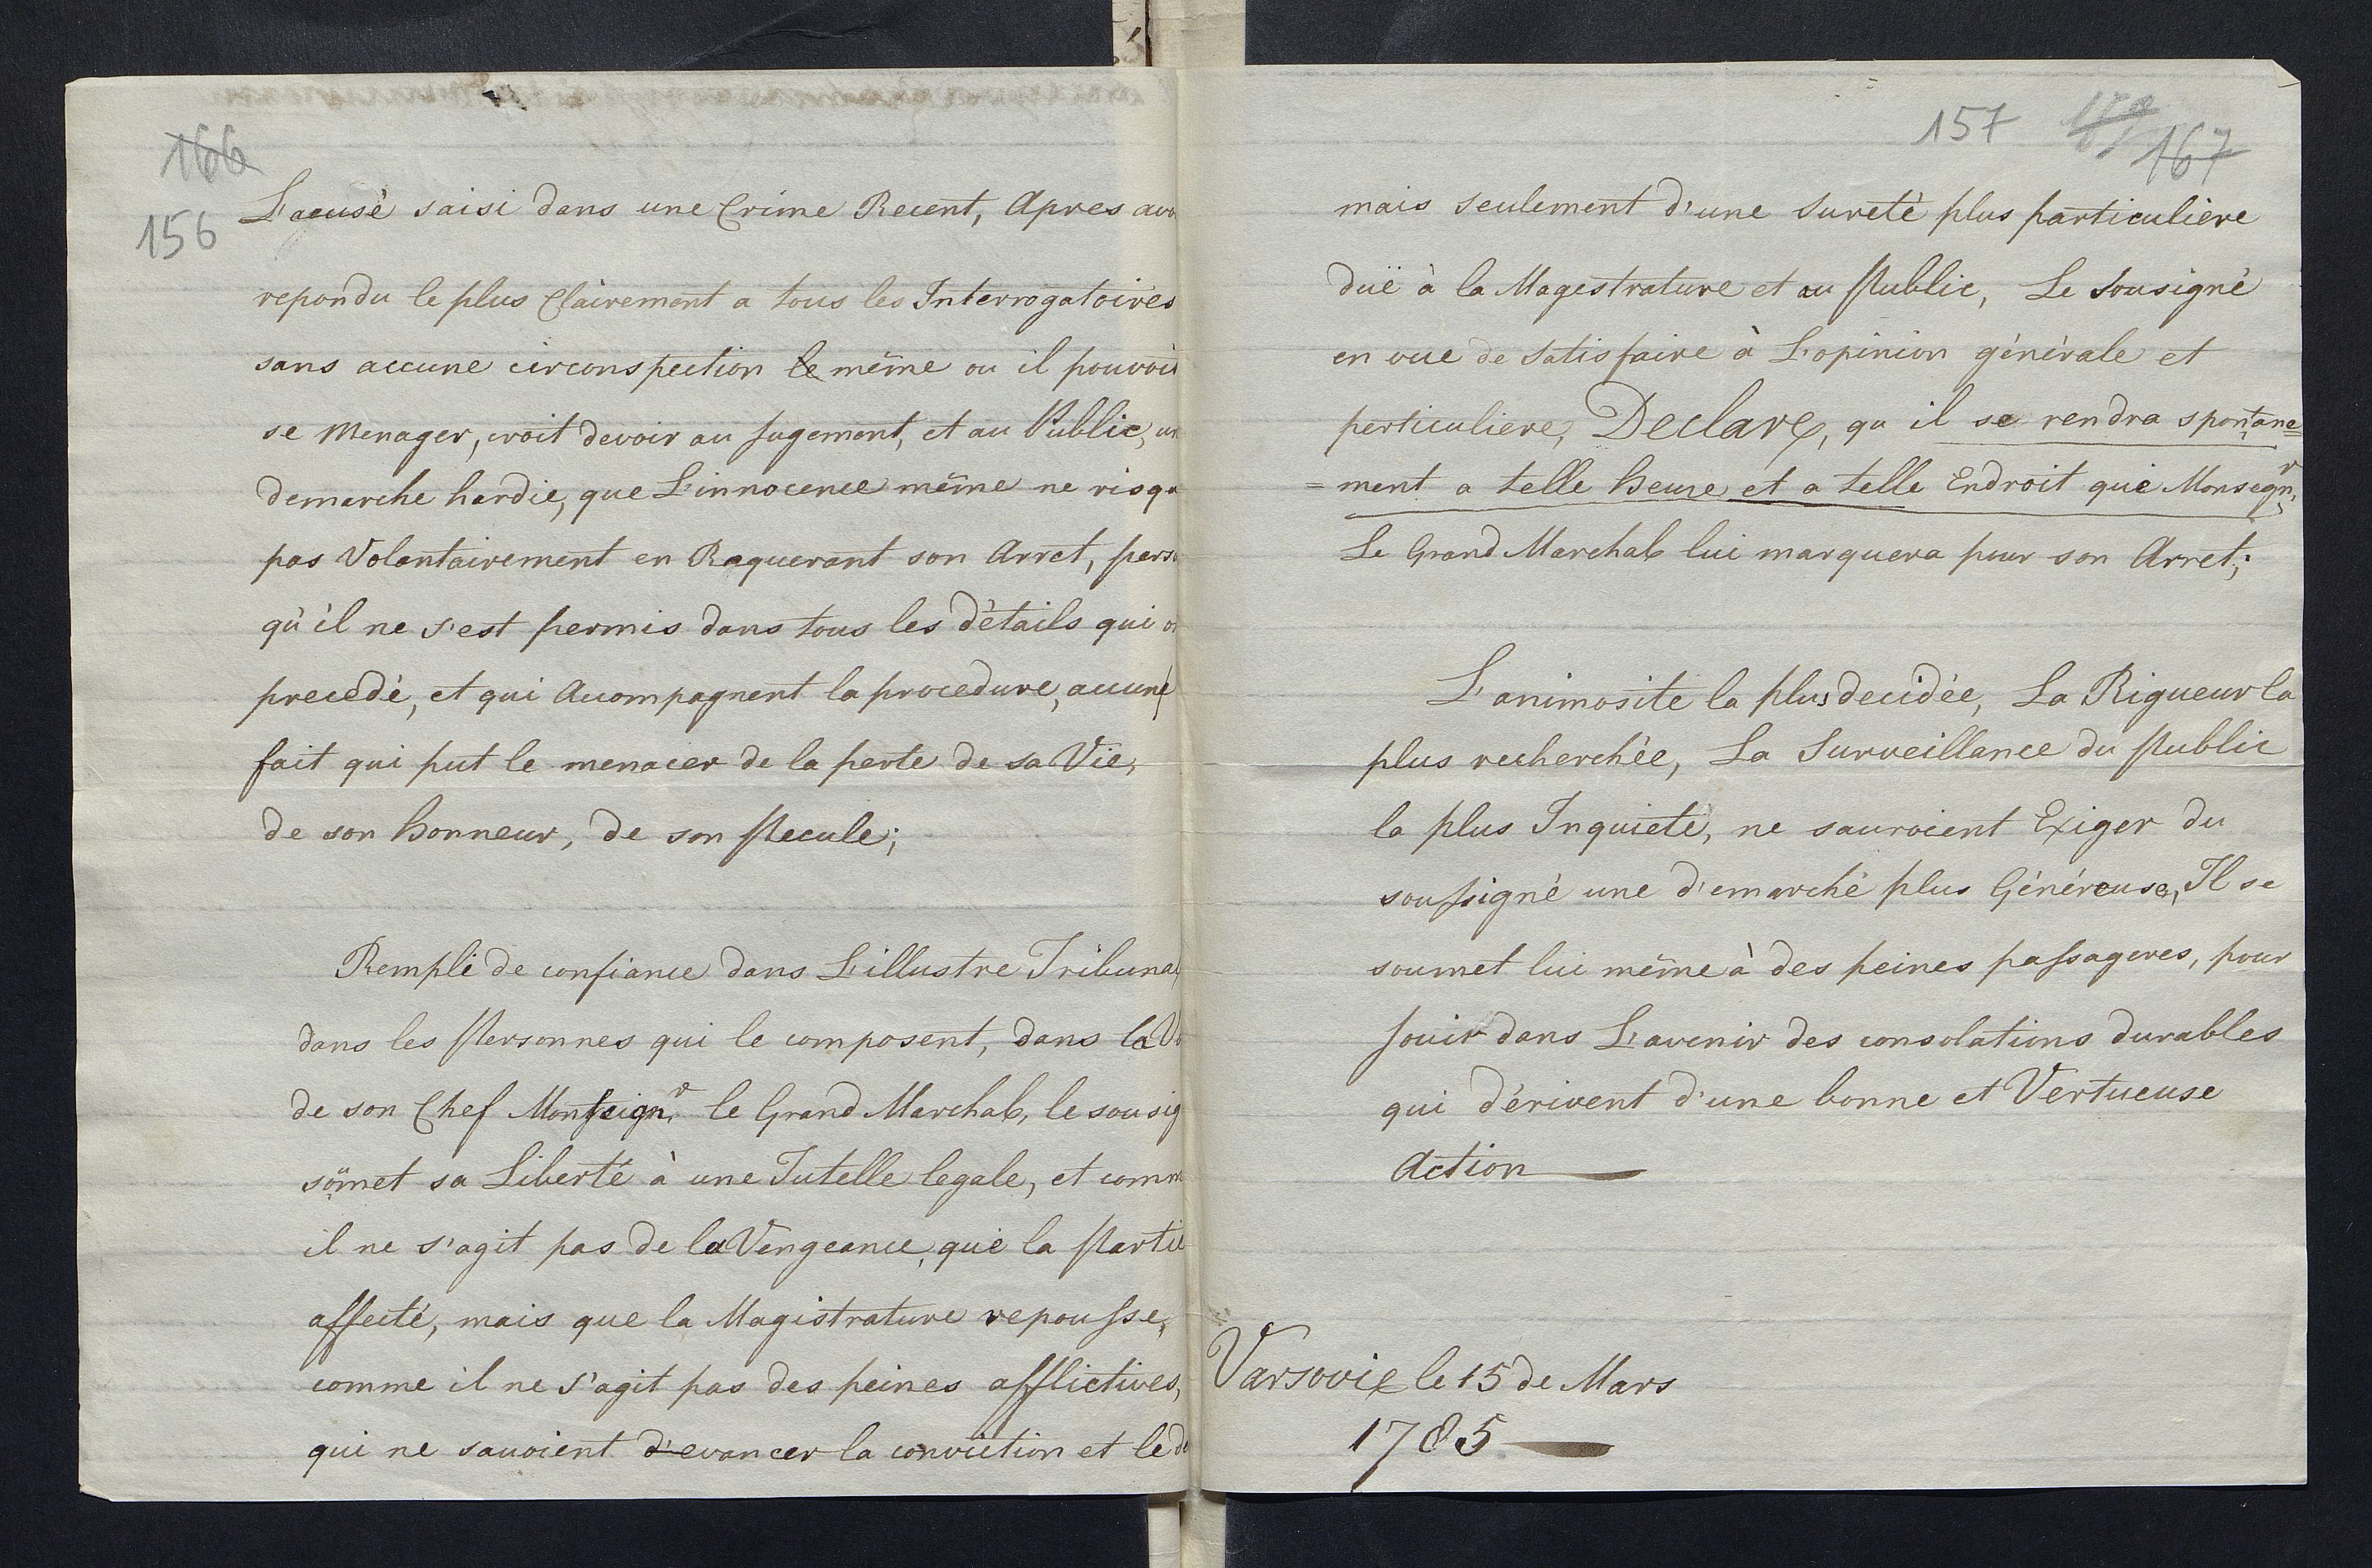 166
156
L'acusé saisi dans une Crime Recent, Apres avo
repondu le plus Clairement a tous les Interrogatoires
sans accune circonspection le même ou il pouvoit
se Menager, croit devoir au Jugement, et au Public, un
demarche hardie, que L'innocence même ne risqu
pas Volontairement en Requerant son Arret, pers
qu'il ne s'est permis dans tous les détails qui o
precedé, et qui Acompagnent la procedure, aucune
fait qui put le menacer de la perte de sa Vie,
de son Honneur, de son Pecule;
Remplé de confiance dans L'illustre Tribunal
dans les Personnes qui le composent, dans la V
de son Chef Monseignr. le Grand Marchal, le sousig
sömet sa Liberté à une Tutelle legale, et comm
il ne s'agit pas de la Vengeance, que la Partie
affecté, mais que la Magistrature repousse,
comme il ne s'agit pas des peines afflictives,
qui ne sauoient d'evancer la conviction et le d
157
167
mais seulement d'une sureté plus particuliere
duë à la Magestrature et au Public, Le Sousigné
en vue de Satisfaire à L'opinion générale et
perticuliere, Declare, qu il se rendra spontane=
=ment a telle heure et a telle Endroit que Monsegnr,
Le Grand Marchal lui marquera pour son Arret;
L'animosite la plus decidée, La Rigueur la
plus recherchée, La Surveillance du Public
la plus Inquiete, ne sauroient Exiger du
soussigné une d'emarché plus Généreuse, Il se
soumet lui même à des peines passageres, pour
Jouir dans L'avenir des consolations durables
qui dérivent d'une bonne et Vertueuse
Action
Varsovie le 15 de Mars
1785